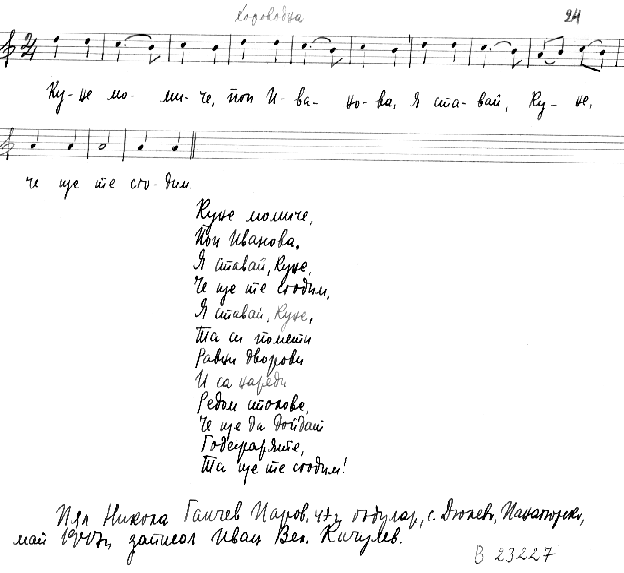 Хороводна 24
Ку- не мо- ми- че, поп И- ва- но- ва, Я ста- вай, Ку- не,
че ще те сго- дим
Куне момиче,
Поп Иванова.
Я ставай, Куне,
Че ще те сгодим,
Я ставай, Куне,
Та си помети
Равни дворови
И са нареди
Редом столове,
Че ще да дойдат
Годежарите,
Та ще те сгодим!
Пял Никола Ганчев с. Дюлево, Панагюрско,
май записал Иван Вел. Качулев.
В 23227